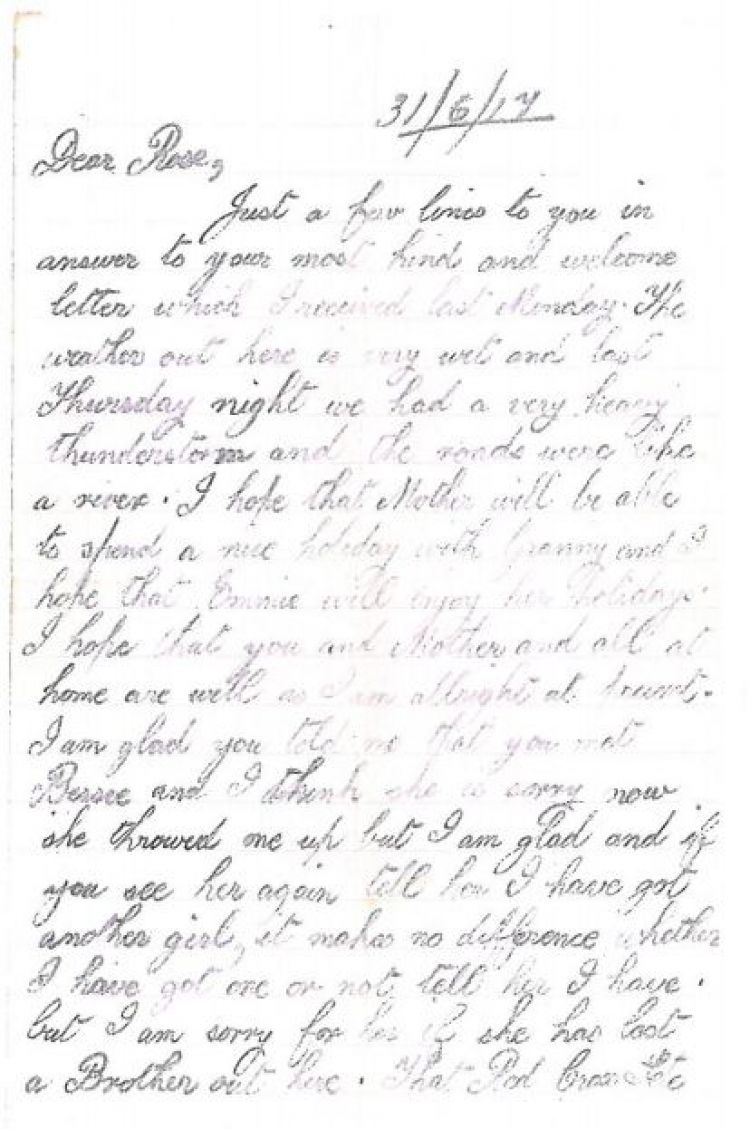 31/6/17
Dear Rose,
Just a few lines to you in
answer to your most kind and welcome
letter which I received last Monday. The
weather out here is very wet and last
Thursday night we had a very heavy
thunderstorm and the roads were like
a river. I hope that Mother will be able
to spend a nice holiday with Granny and I
hope that Emmie will enjoy her holidays.
I hope that you and Mother and all at
home are well as I am allright at present.
I am glad you told me that you met
Bessie and I think she is sorry now
she throwed me up but I am glad and if
you see her again tell her I have got
another girl, it makes no difference whether
I have got one or not, tell her I have.
but I am sorry for her if she has lost
a Brother out here. That Red Cross